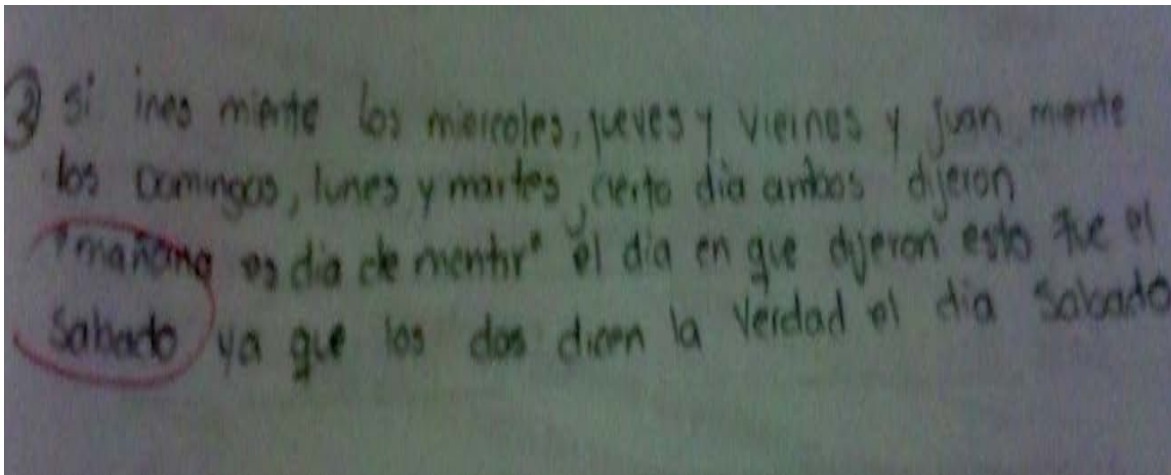 3 si ines miente los miercoles, jueves y viernes y juan miente
los Domingos, lunes y martes, cierto dia ambos dijeron
"mañana es dia de mentir" el dia en que dijeron esto fue el
Sabado ya que los dos dicen la verdad el dia Sabado